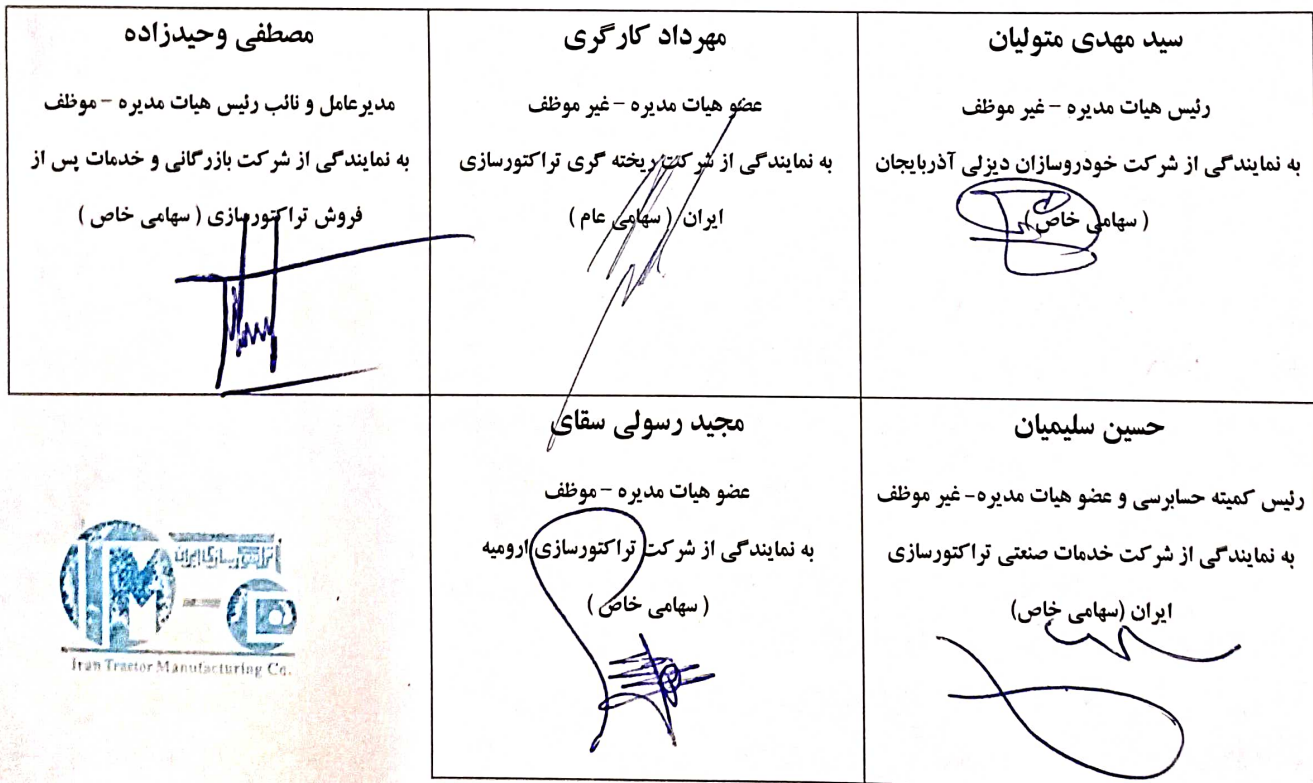 سید مهدی متولیان
رئیس هیات مدیره – غیر موظف
به نمایندگی از شرکت خودروسازان دیزلی آذربایجان
( سهامی خاص )
مهرداد کارگری
عضو هیات مدیره – غیر موظف
به نمایندگی از شرکت ریخته گری تراکتورسازی
ایران ( سهامی عام )
مصطفی وحیدزاده
مدیرعامل و نائب رئیس هیات مدیره – موظف
به نمایندگی از شرکت بازرگانی و خدمات پس از
فروش تراکتورسازی ( سهامی خاص )
حسین سلیمیان
رئیس کمیته حسابرسی و عضو هیات مدیره– غیر موظف
به نمایندگی از شرکت خدمات صنعتی تراکتورسازی
ایران (سهامی خاص)
مجید رسولی سقای
عضو هیات مدیره – موظف
به نمایندگی از شرکت تراکتورسازی ارومیه
( سهامی خاص )
تراکتورسازی ایران
ITM
Iran Tractor Manufacturing Co.